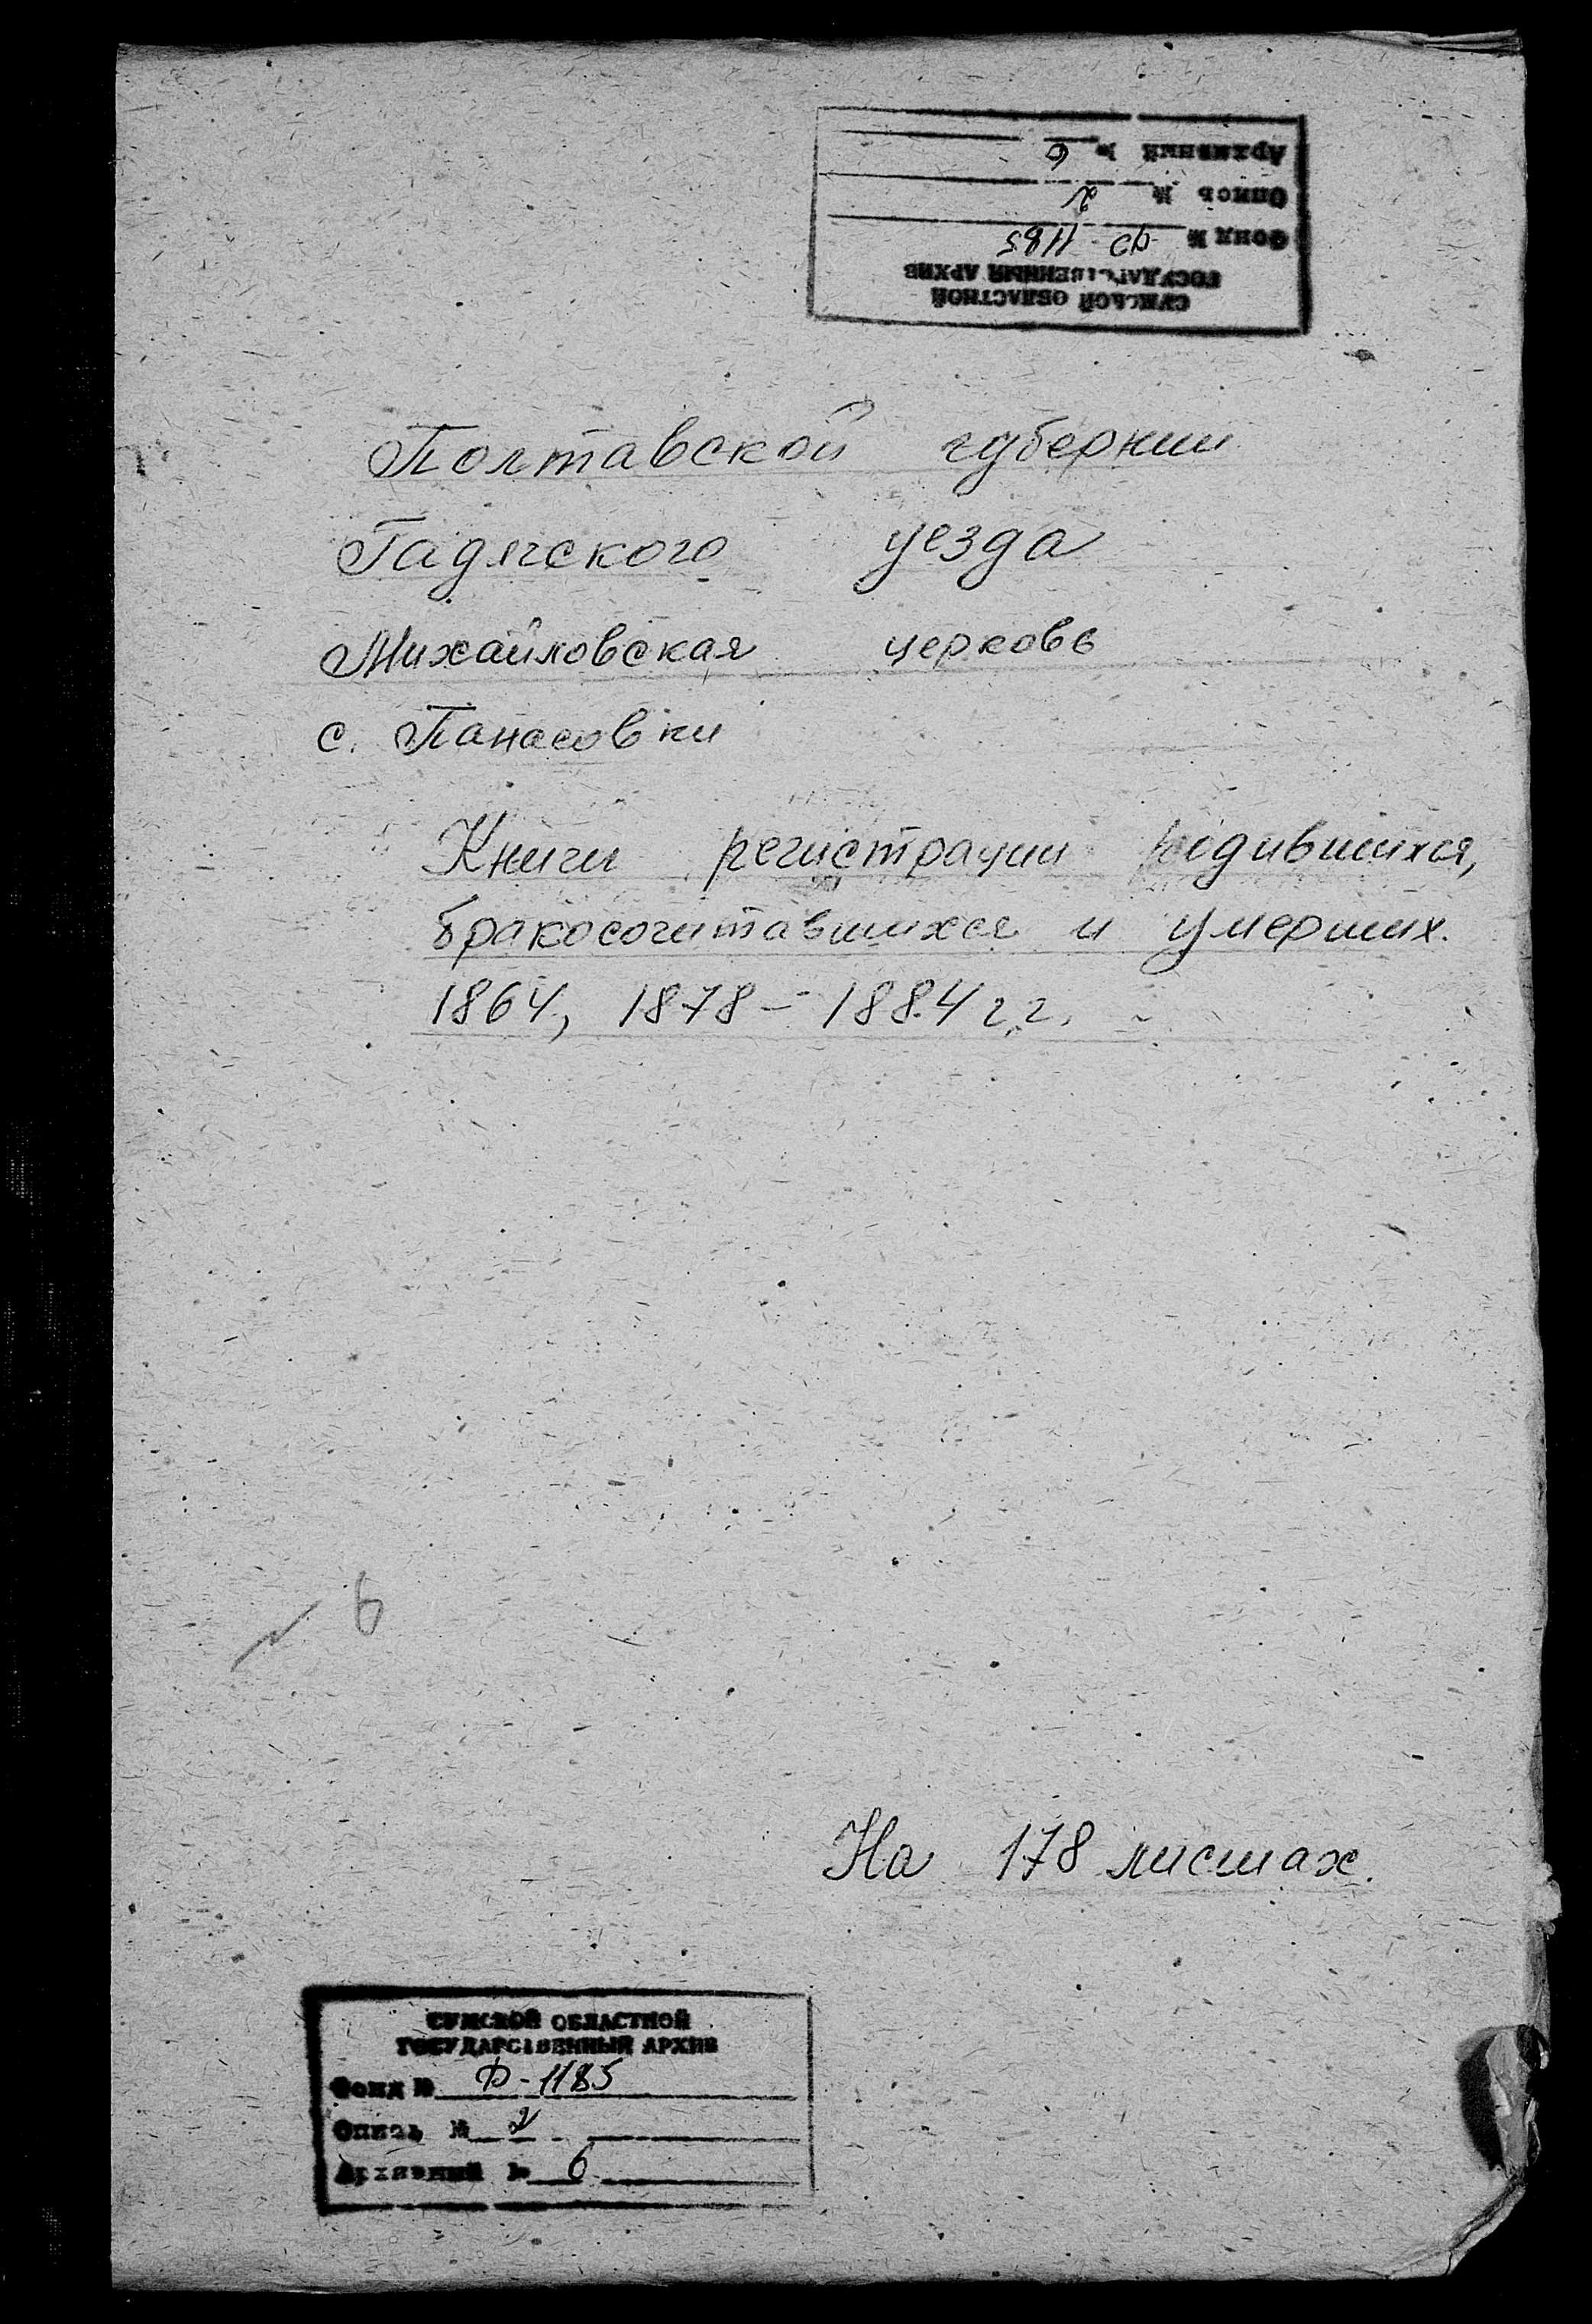 СУМСКОЙ ОБЛАСТНОЙ
ГОСУДАРСТВЕННЫЙ АРХИВ
Фонд № Ф-1185
Опись № 2
Архивный № 6
Полтавской губернии
Гадячского уезда
Михайловская церковь
с. Панасовки
Книги регистрации родившихся,
бракосочитавшихся и умерших.
1864, 1878-1884 г.г.
№ 6
На 178 листах.
СУМСКОЙ ОБЛАСТНОЙ
ГОСУДАРСТВЕННЫЙ АРХИВ
Фонд № Ф-1185
Опись № 2
Архивный № 6